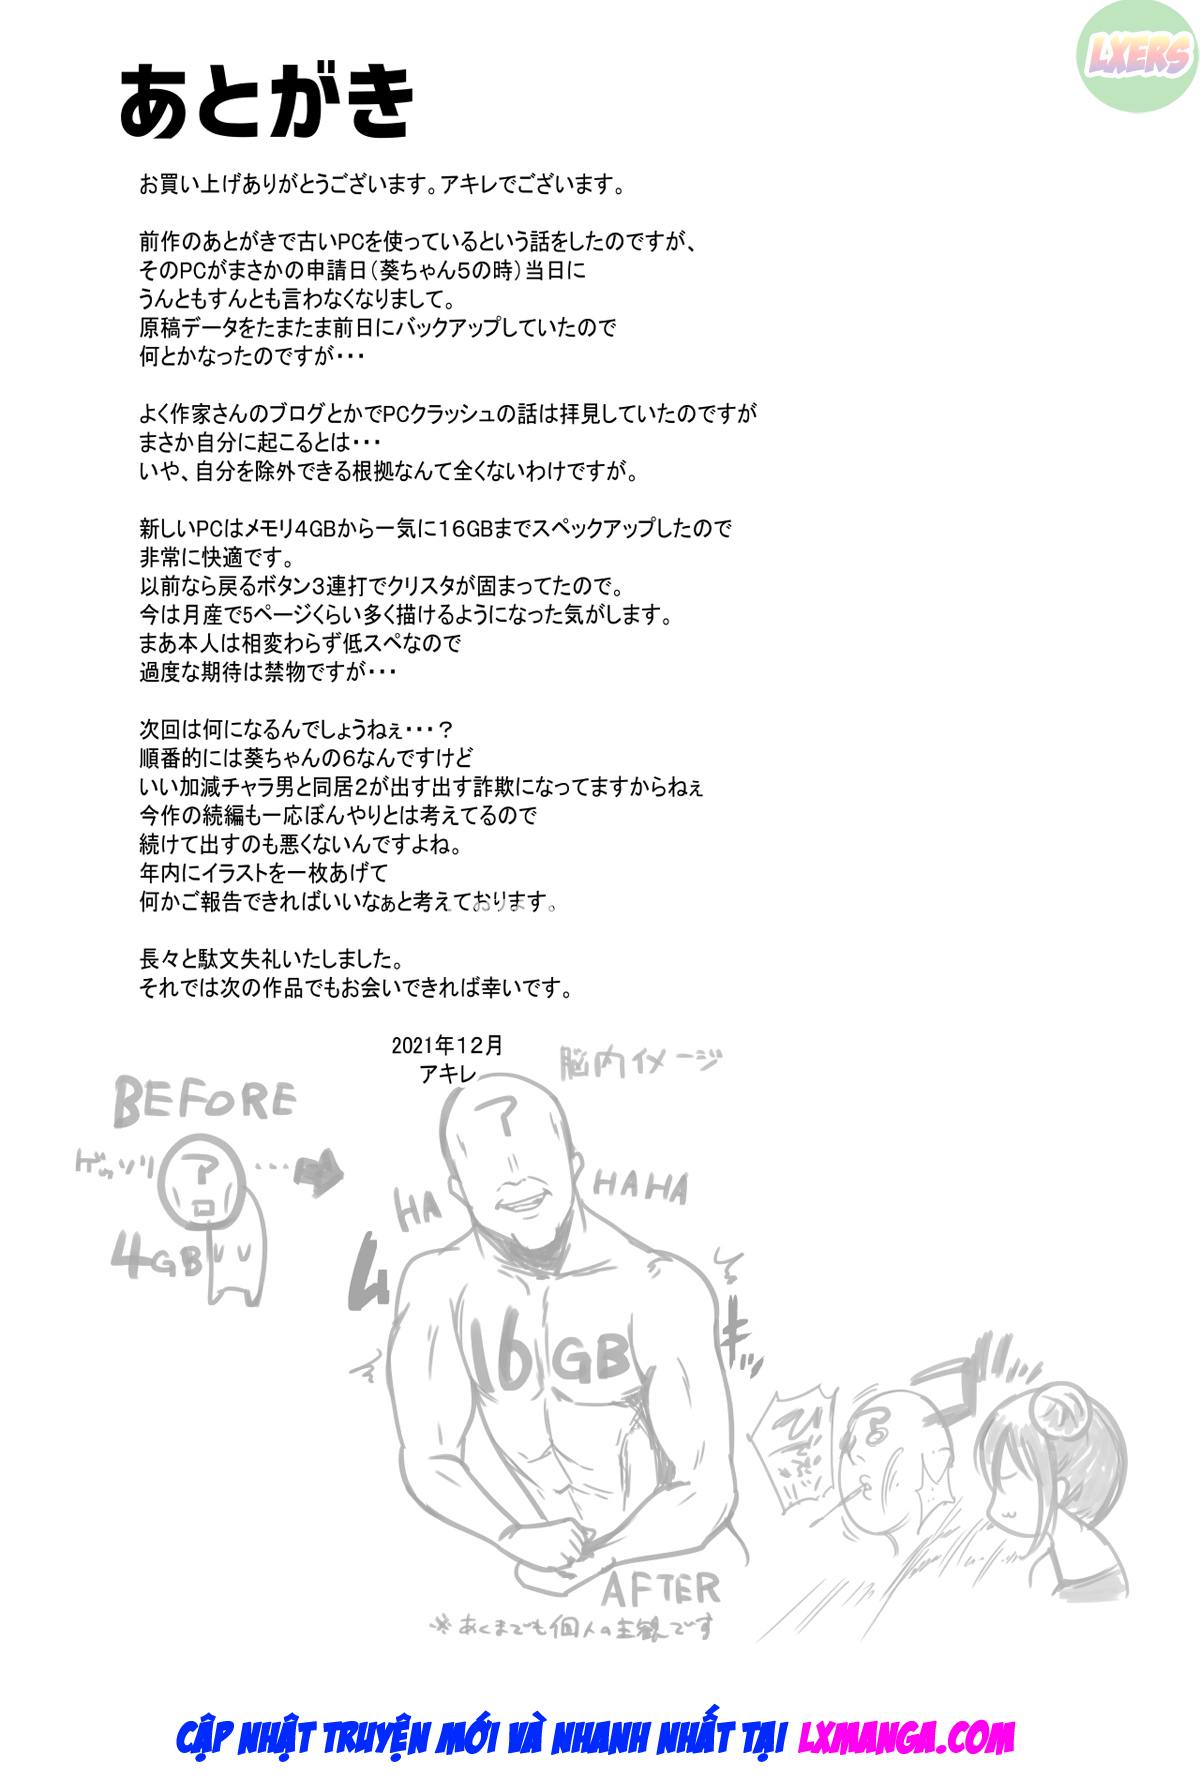 LXERS
あとがき
お買い上げありがとうございます。アキレでございます。
前作のあとがきで古いPCを使っているという話をしたのですが、
そのPCがまさかの申請日（葵ちゃん５の時）当日に
うんともすんとも言わなくなりまして。
原稿データをたまたま前日にバックアップしていたので
何とかなったのですが・・・
よく作家さんのブログとかでPCクラッシュの話は拝見していたのですが
まさか自分に起こるとは・・・
いや、自分を除外できる根拠なんて全くないわけですが。
新しいPCはメモリ４GBから一気に１６GBまでスペックアップしたので
非常に快適です。
以前なら戻るボタン３連打でクリスタが固まってたので。
今は月産で5ページくらい多く描けるようになった気がします。
まあ本人は相変わらず低スペなので
過度な期待は禁物ですが・・・
次回は何になるんでしょうねぇ・・・？
順番的には葵ちゃんの６なんですけど
いい加減チャラ男と同居２が出す出す詐欺になってますからねぇ
今作の続編も一応ぼんやりとは考えてるので
続けて出すのも悪くないんですよね。
年内にイラストを一枚あげて
何かご報告できればいいなぁと考えております。
長々と駄文失礼いたしました。
それでは次の作品でもお会いできれば幸いです。
2021年１２月
アキレ
脳内イメージ
BEFORE
ゲッソリ
ア
ロ
4GB
ア
HA
HAHA
ムキッ
16GB
AFTER
※あくまでも個人の主観です
ア
CẬP NHẬT TRUYỆN MỚI VÀ NHANH NHẤT TẠI LXMANGA.COM